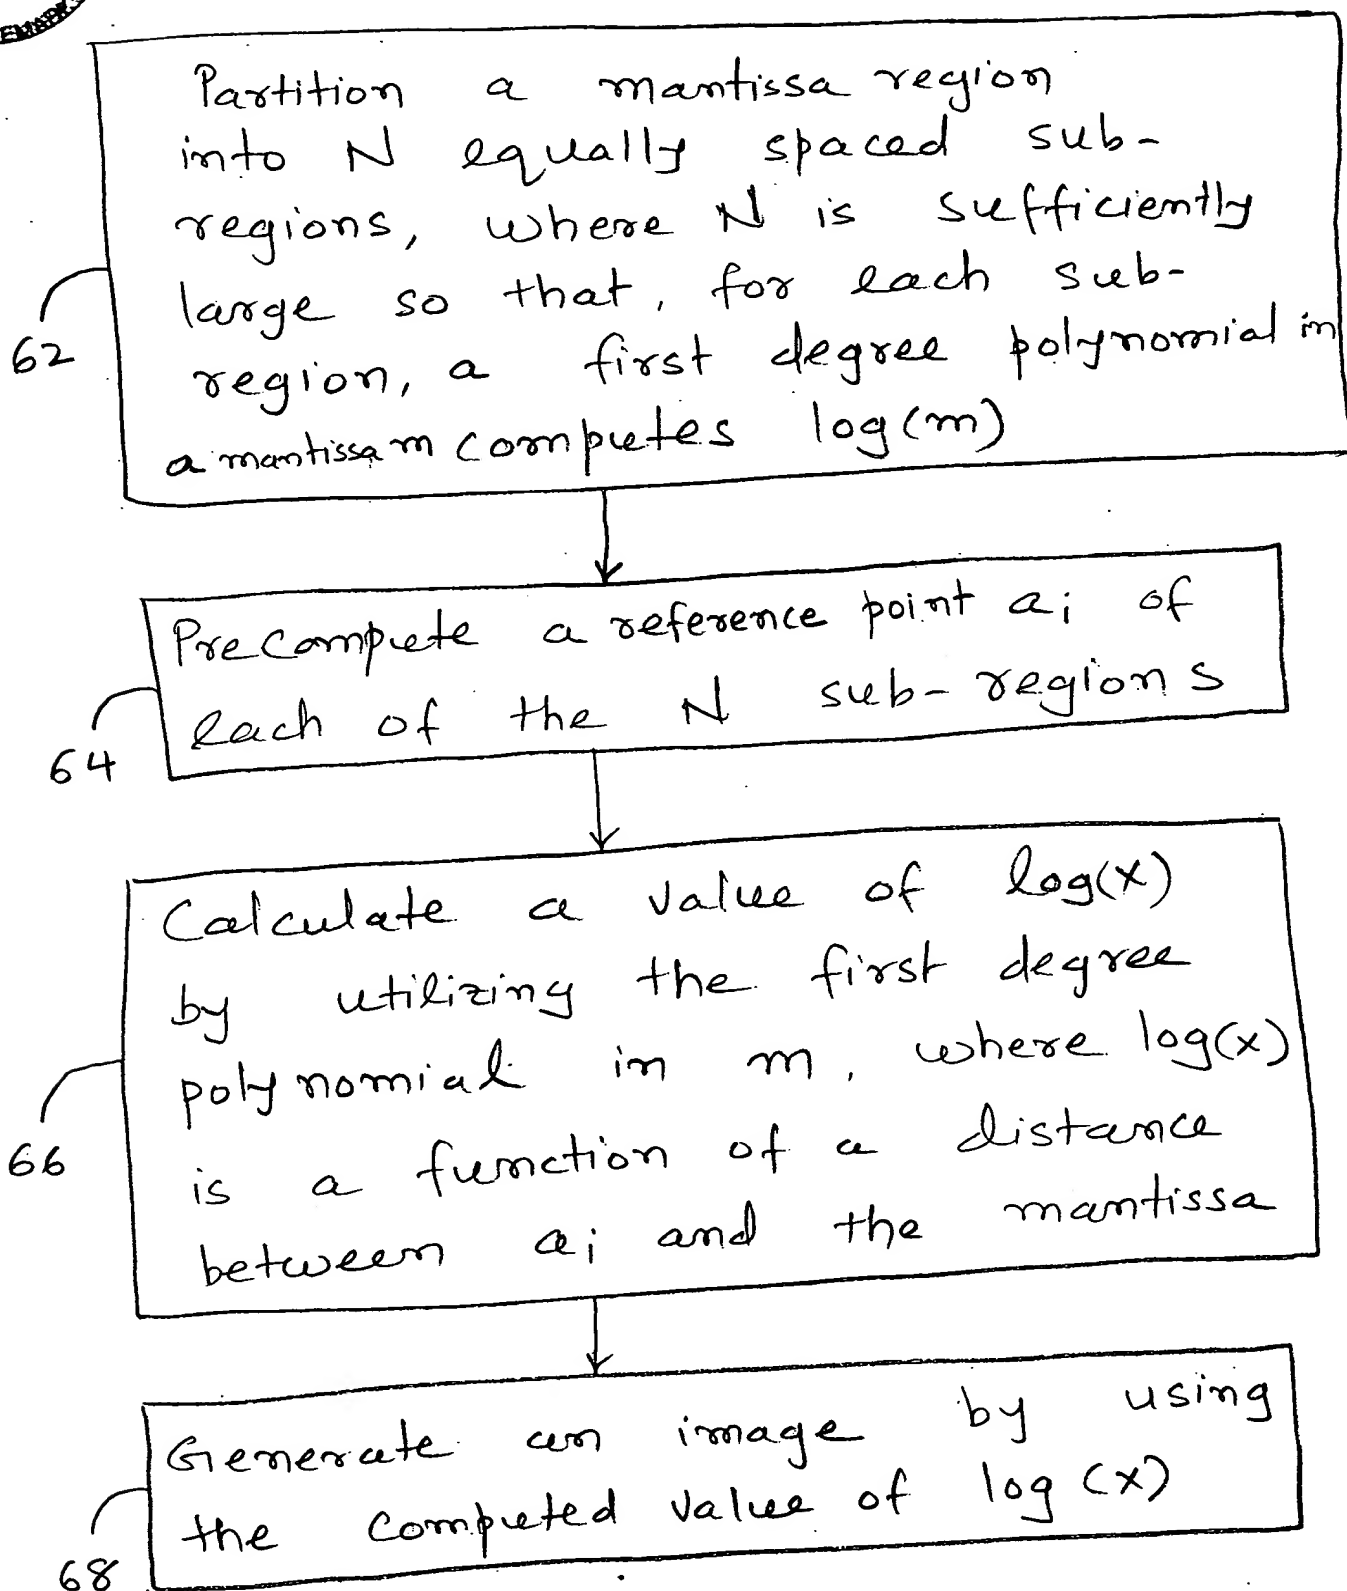 Partition a mantissa region
into N equally spaced sub-
regions, where N is sufficiently
large so that, for each sub-
region, a first degree polynomial in
a mantissa m computes log(m)
62
Precompute a reference point ai of
each of the N sub-regions
64
Calculate a value of log(x)
by utilizing the first degree
polynomial in m, where log(x)
is a function of a distance
between ai and the mantissa
66
Generate an image by using
the computed value of log (x)
68